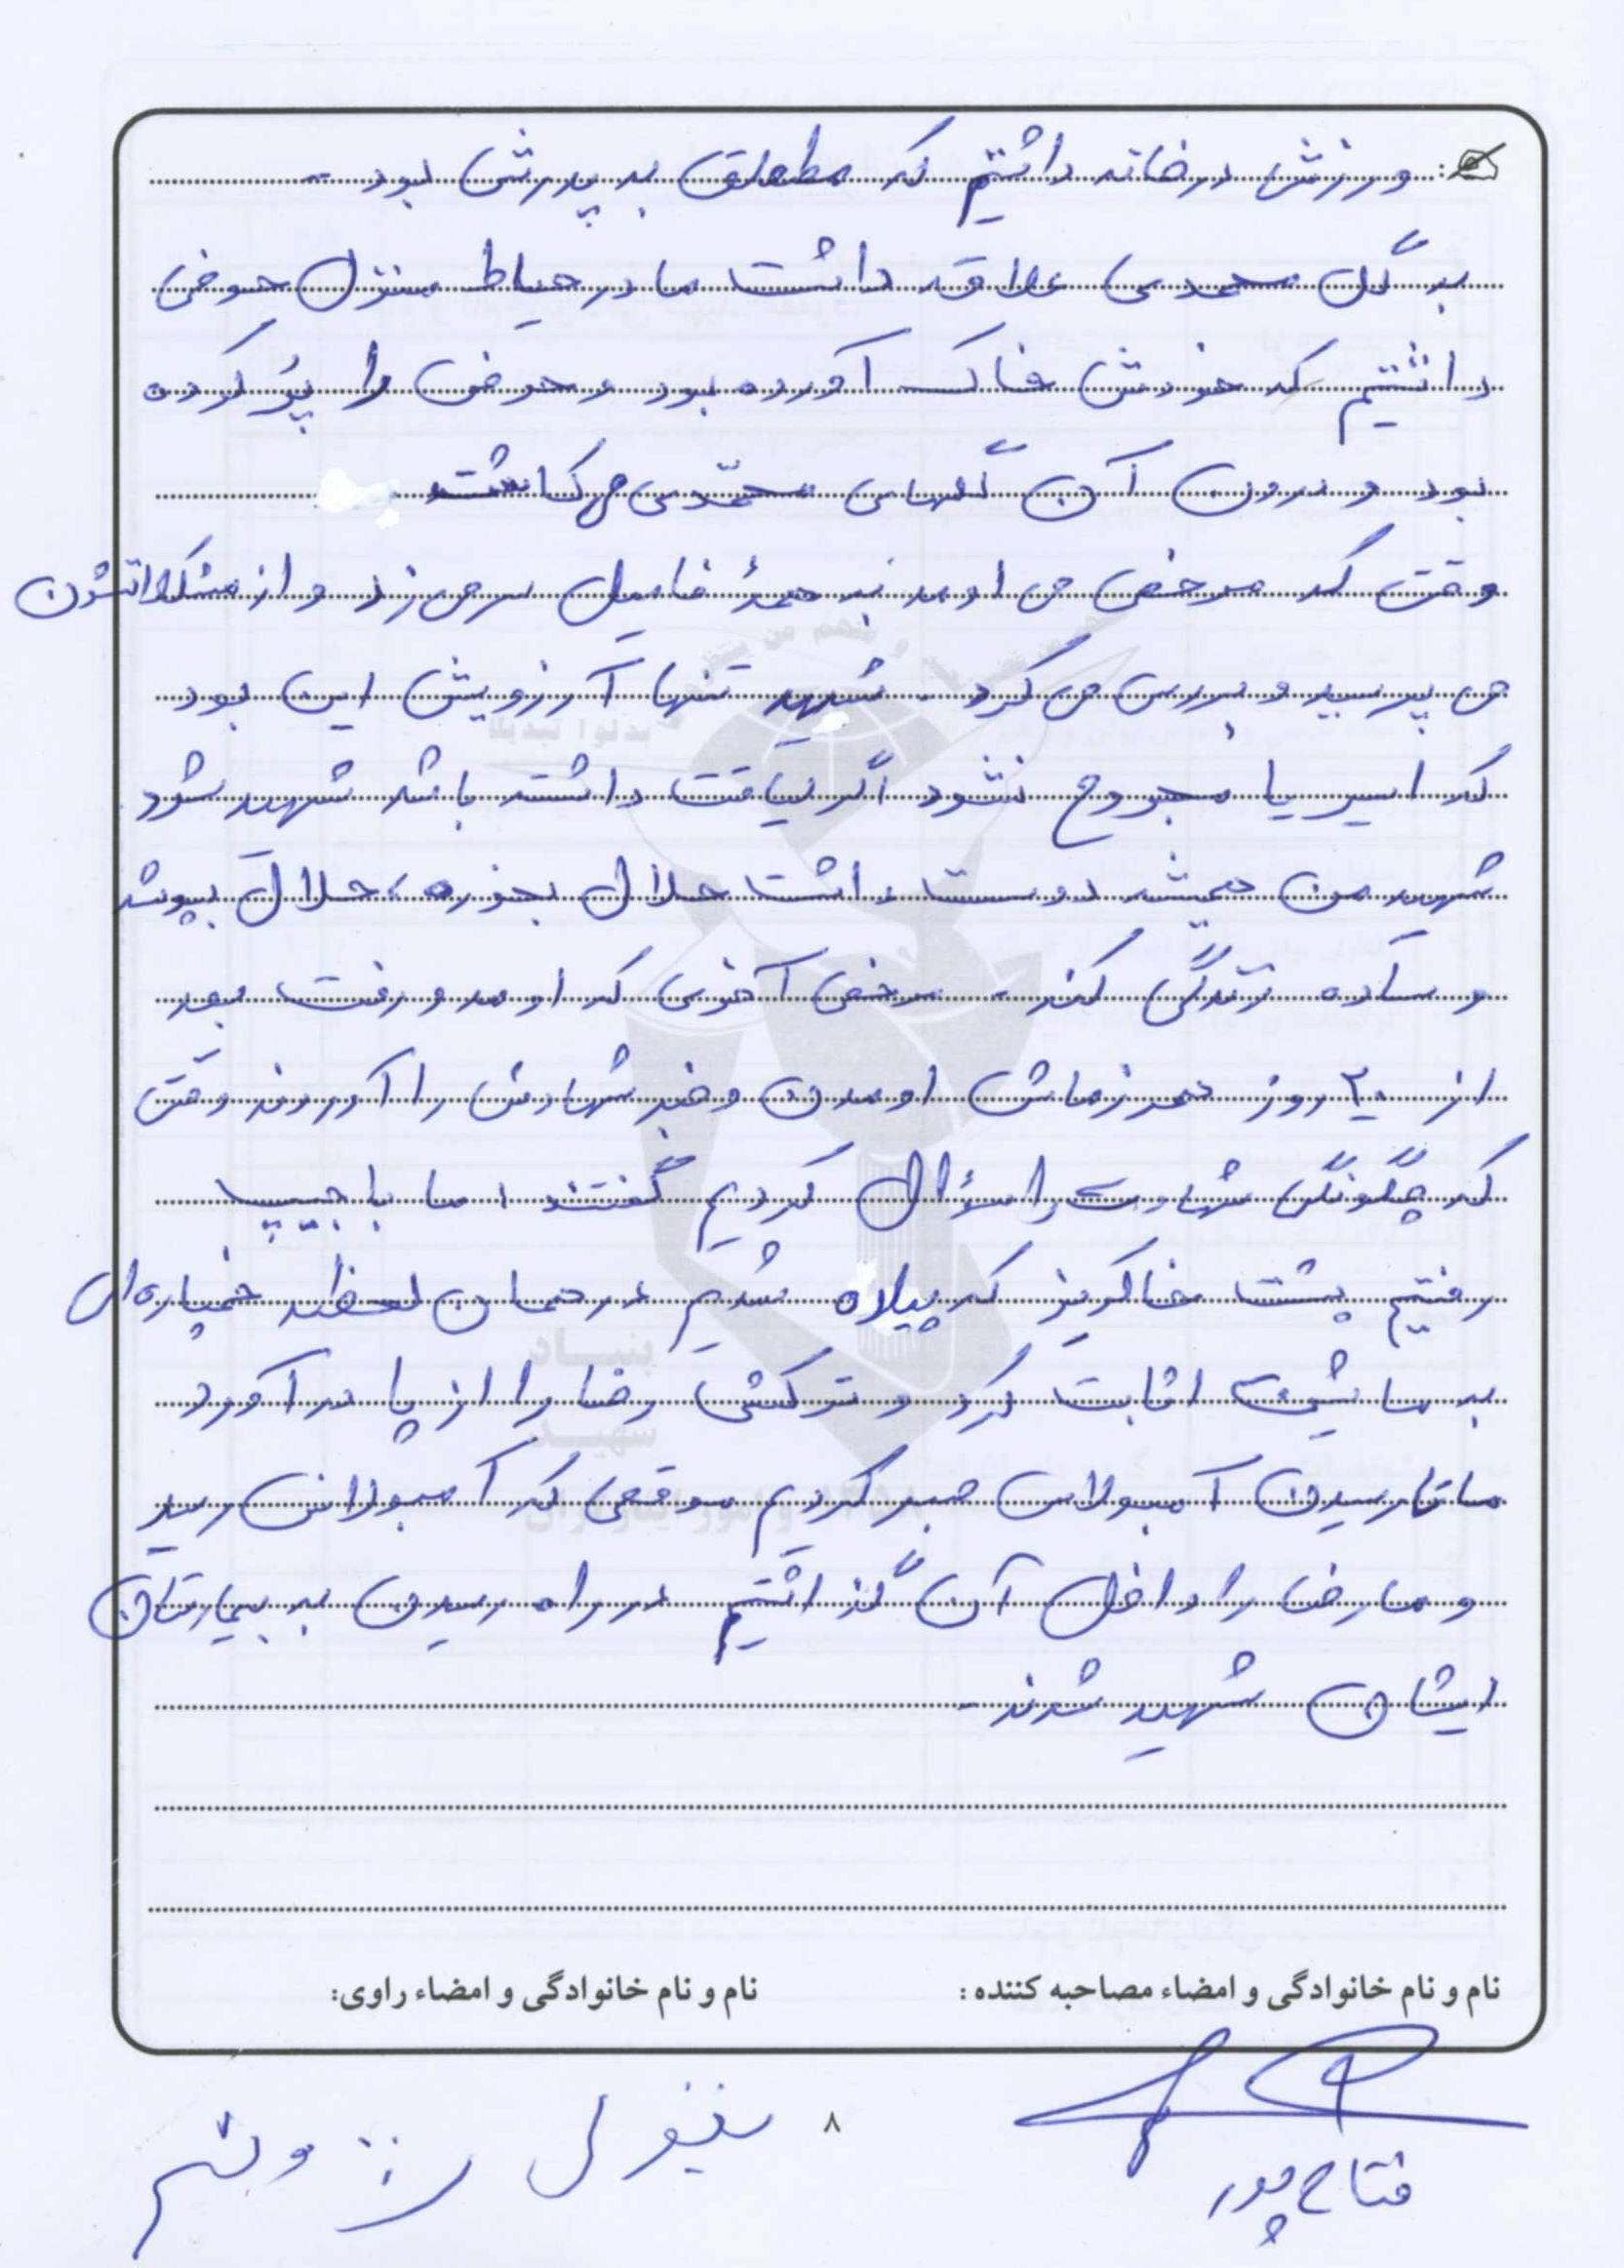 ورزش در خانه داشتیم که مطعلق به پدرش بود -
به گل محمدی علاقه داشت ما در حیاط منزل حوضی
داشتیم که خودش خاک آورده بود و حوض را پُر کرده
بود و درون آن گلهای محمّدی می کاشت
وقتی که مرخصی می اومد به همهٔ فامیل سر می زد و از مشکلاتشون
می پرسید و بررسی می کرد - شهید تنها آرزویش این بود
که اسیر یا مجروح نشود اگر لیاقت داشته باشد شهید شود
شهید من همیشه دوست داشت حلال بخوره، حلال بپوشد
و ساده زندگی کند - مرخصی آخری که اومد و رفت بعد
از ۲۰ روز همرزماش اومدن و خبر شهادتش را آوردند وقتی
که چگونگی شهادت را سؤال کردیم گفتند: ما با جیپ
رفتیم پشت خاکریز که پیاده شدیم در همان لحظه خمپاره ای
به ماشین اثابت کرد و ترکشی رضا را از پا در آورد
ما تا رسیدن آمبولاس صبر کردیم موقعی که آمبولانس رسید
و ما رضا را داخل آن گذاشتیم در راه رسیدن به بیمارستان
ایشان شهید شدند -
نام و نام خانوادگی و امضاء مصاحبه کننده :
نام و نام خانوادگی و امضاء راوی:
۸
فتاح پور
بنیاد
شهید